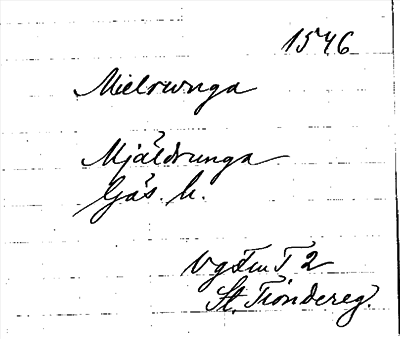 1546
Mielrunga
Mjäldrunga
Gäs. h.
Vg Fm T 2
St. Tiondereg.